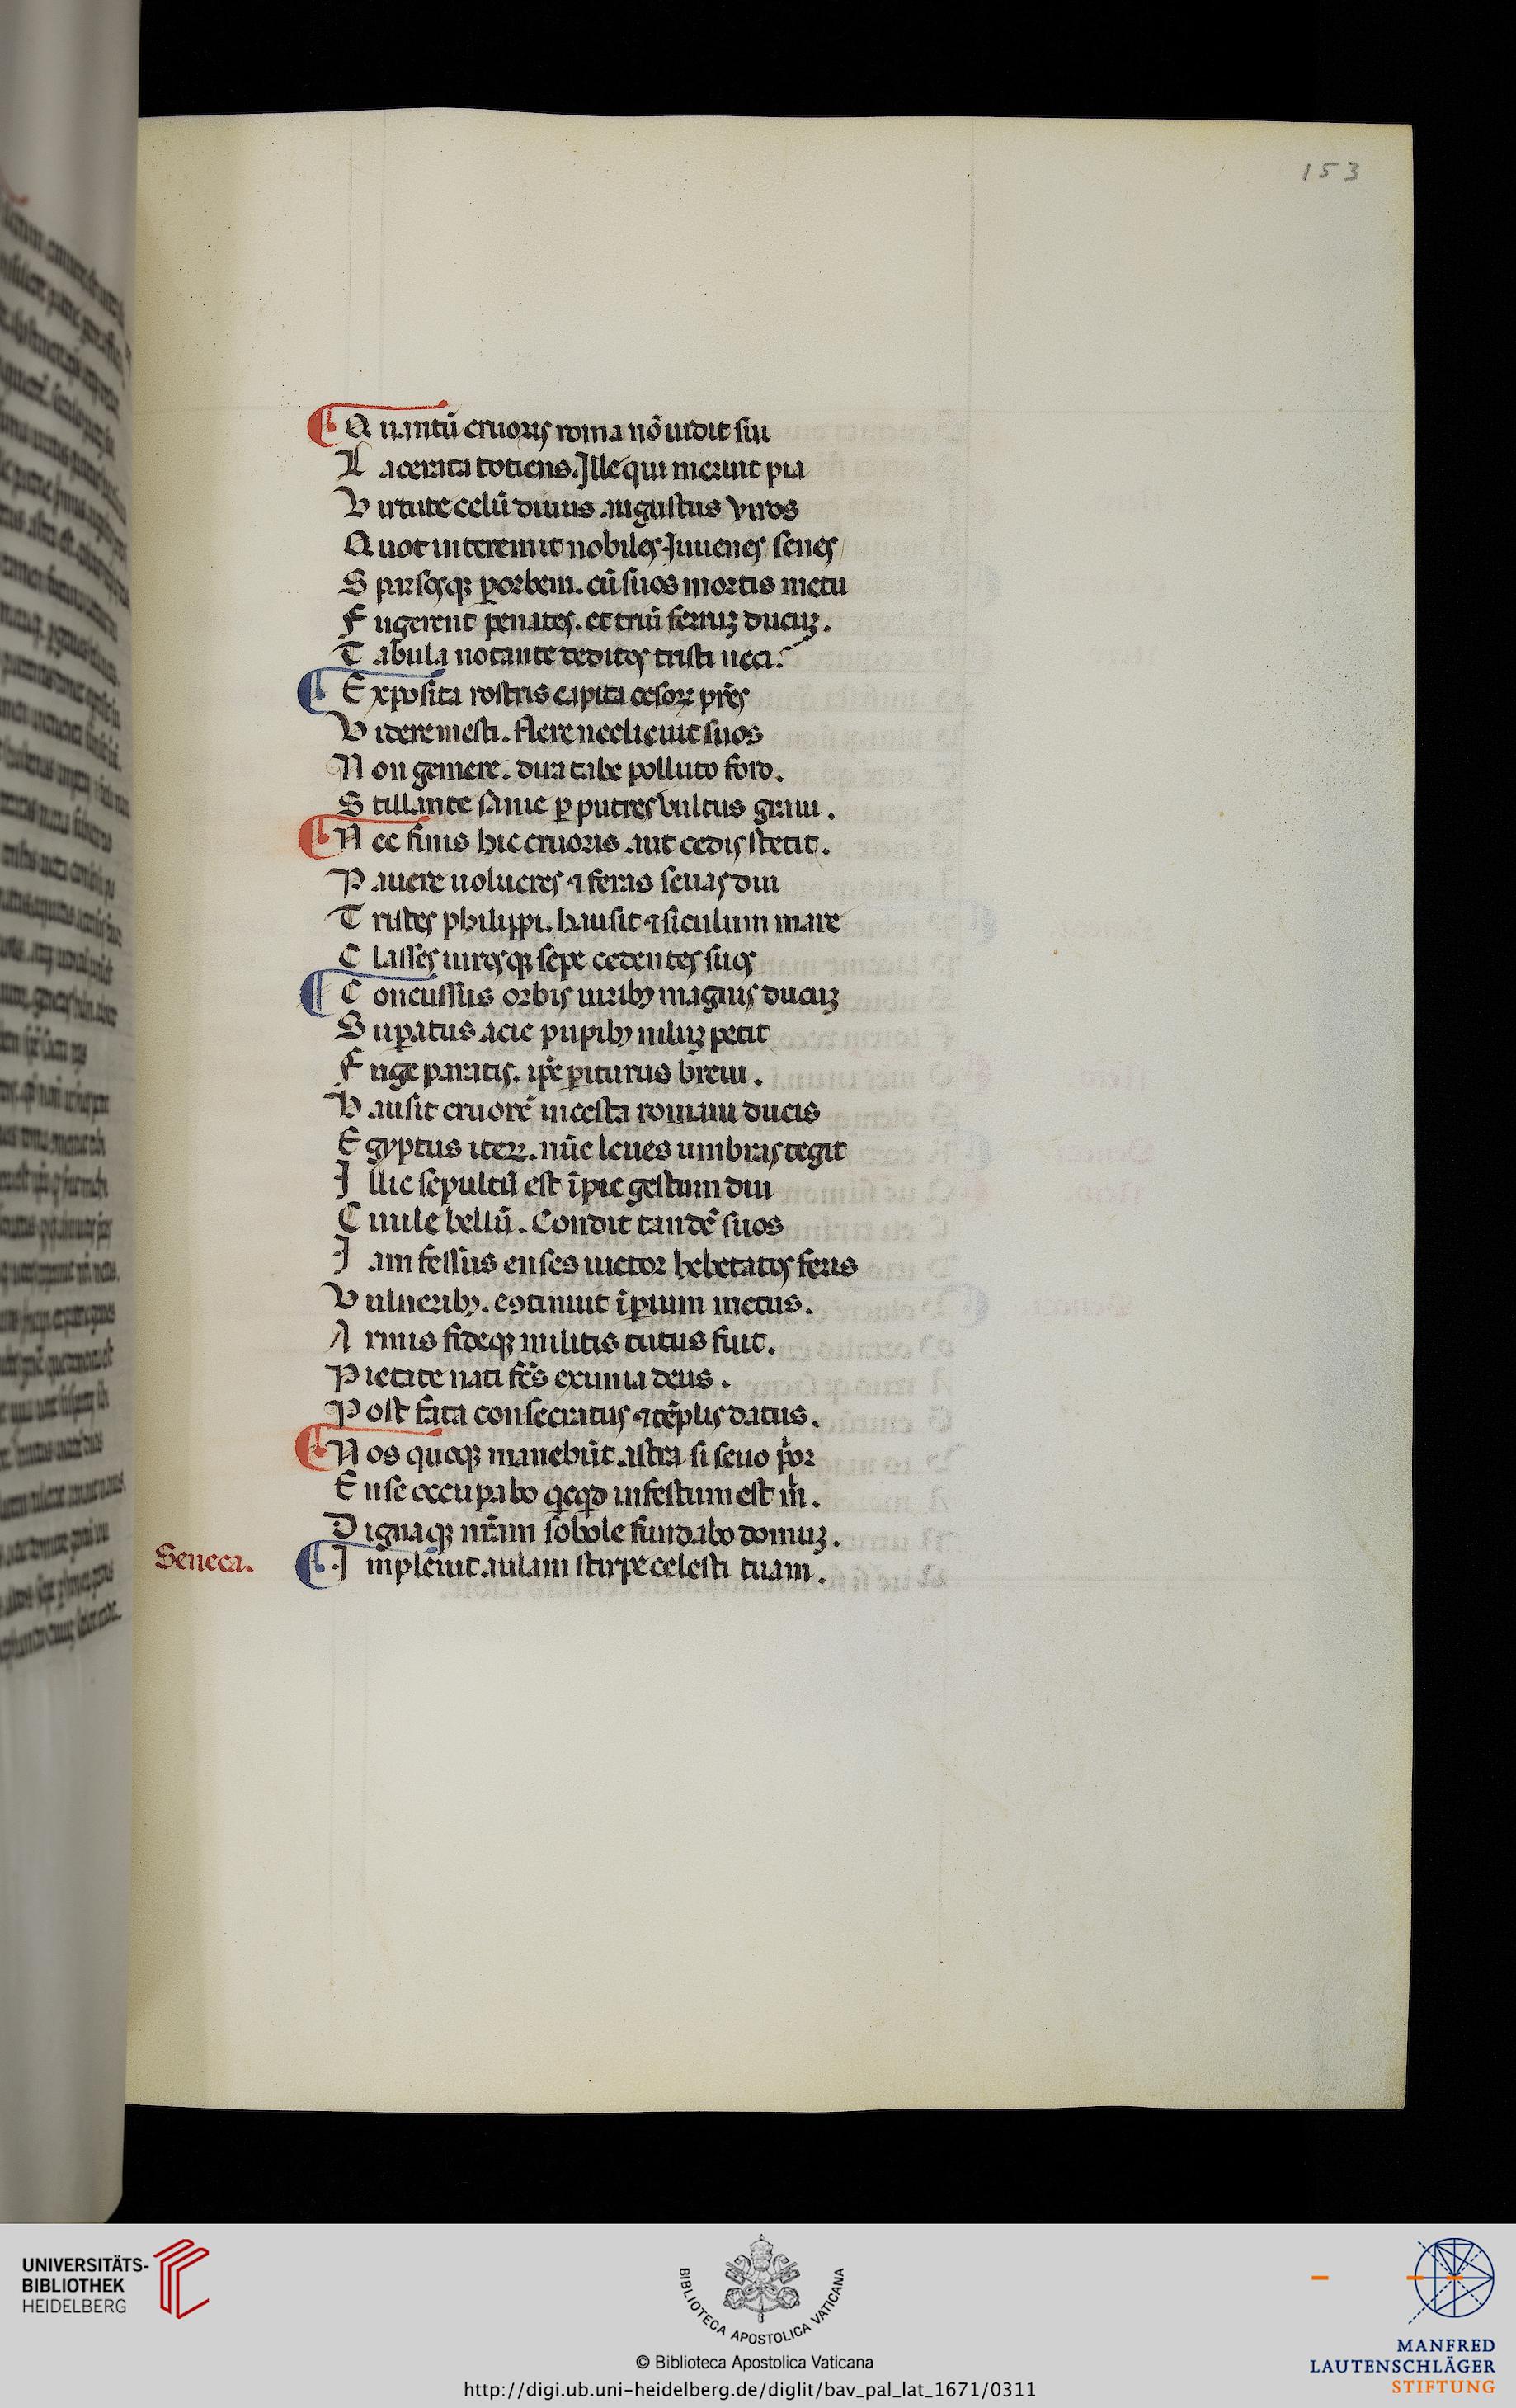 153
Quantū cruoris roma nō uidit sui
Lacerata totiens. Ille qui meruit pia
Virtute celū diuus augustus viros
Quot interemit nobiles. Iuuenes senes
Sparsosq; ꝑ orbem. cū suos mortis metu
Fugerent penates. et triū ferruꝫ ducuꝫ.
Tabula notante deditos tristi neci.
Exposita rostris capita cesoꝝ pr̄es
Videre mesti. flere nec licuit suos
Non gemere. dira tabe polluto foro.
Stillante sanie ꝑ putres vultus graui.
Nec finis hic cruoris aut cedis stetit.
Pauere uolucres ⁊ feras seuas diu
Tristes philippi. hausit ⁊ siculum mare
Classes uirosq; sepe cedentes suos
Concussus orbis uiribꝫ magnis ducuꝫ
Suꝑatus acie pupibꝫ niluꝫ petit
Fuge paratis. ip̄e ꝑiturus breui.
Hausit cruorē incesta romani ducis
Egyptus iteꝝ. nūc leues umbras tegit
Illic sepultū est īpie gestum diu
Ciuile bellū. Condit tandē suos
Iam fessus enses uictor hebetatos feris
Vulneribꝫ. ꝯtinuit īꝑium metus.
Armis fideq; militis tutus fuit.
Pietate nati fc̄s eximia deus.
Post fata consecratus ⁊ tēplis datus.
Nos quoq; manebūt astra si seuo p̓or
Ense occupabo q̓cq̓d infestum est m̓.
Dignaq; nr̄am sobole fundabo domuꝫ.
Seneca.
Implēuit aulam stirpe celesti tuam.
UNIVERSITÄTS-
BIBLIOTHEK
HEIDELBERG
BIBLIOTECA APOSTOLICA VATICANA
© Biblioteca Apostolica Vaticana
http://digi.ub.uni-heidelberg.de/diglit/bav_pal_lat_1671/0311
MANFRED
LAUTENSCHLÄGER
STIFTUNG